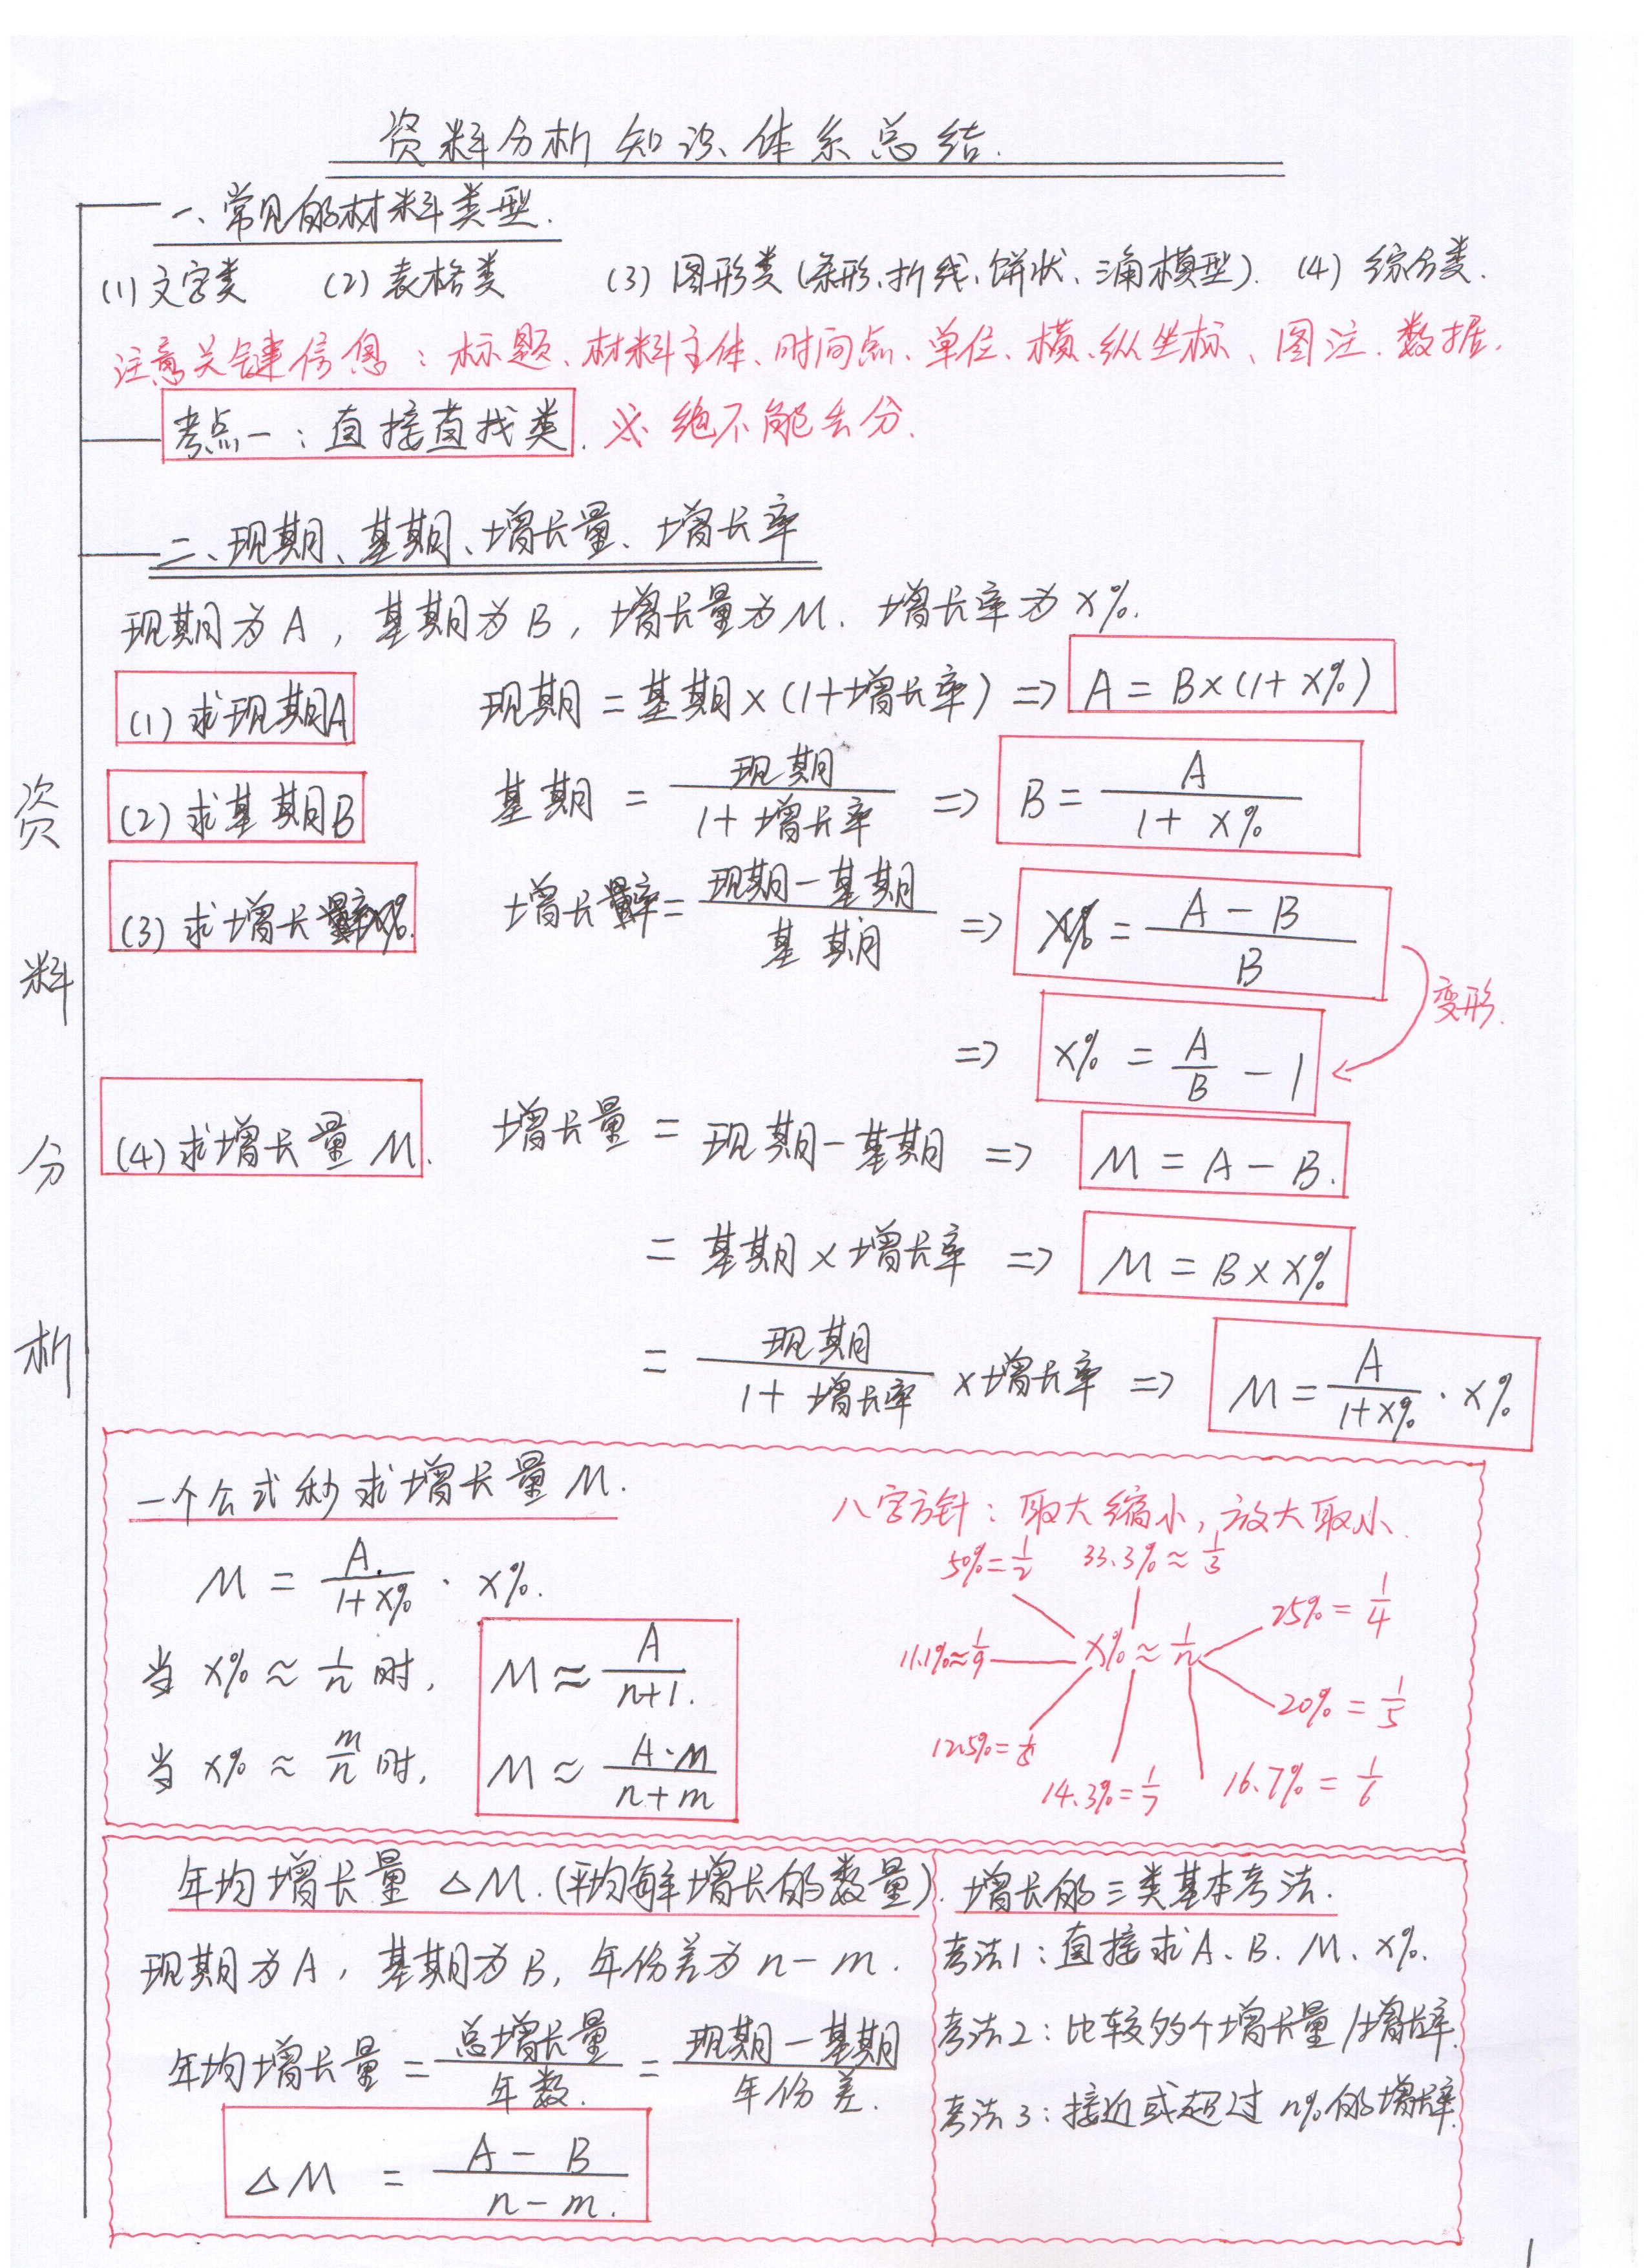 资料分析知识体系总结.
一、常见的材料类型.
(1) 文字类 (2) 表格类 (3) 图形类 (条形、折线、饼状、三角模型). (4) 综合类.
注意关键信息：标题、材料主体、时间点、单位、横、纵坐标、图注、数据.
考点一：直接查找类. ※ 绝不能丢分.
二、现期、基期、增长量、增长率
现期为 A，基期为 B，增长量为 M. 增长率为 x%.
(1) 求现期A 现期 = 基期 × (1+增长率) => A = B×(1+x%)
(2) 求基期B 基期 = 现期/(1+增长率) => B = A/(1+x%)
(3) 求增长率x%. 增长率 = (现期-基期)/基期 => x% = (A-B)/B
变形.
=> x% = A/B - 1
(4) 求增长量 M. 增长量 = 现期-基期 => M = A-B.
= 基期×增长率 => M = B×x%
= 现期/(1+增长率) ×增长率 => M = A/(1+x%) · x%
资料分析
一个公式秒求增长量 M.
M = A/(1+x%) · x%.
当 x% ≈ 1/n 时, M ≈ A/(n+1).
当 x% ≈ m/n 时, M ≈ A·m/(n+m)
八字方针：取大缩小，放大取小.
50% = 1/2 33.3% ≈ 1/3
25% = 1/4
11.1% ≈ 1/9 x% ≈ 1/n
20% = 1/5
12.5% = 1/8
14.3% = 1/7 16.7% = 1/6
年均增长量 △M. (平均每年增长的数量).
现期为 A，基期为 B，年份差为 n-m.
年均增长量 = 总增长量/年数. = (现期-基期)/年份差.
△M = (A-B)/(n-m).
增长的三类基本考法.
考法1：直接求 A、B、M、x%.
考法2：比较多个增长量/增长率.
考法3：接近或超过 n% 的增长率.
1